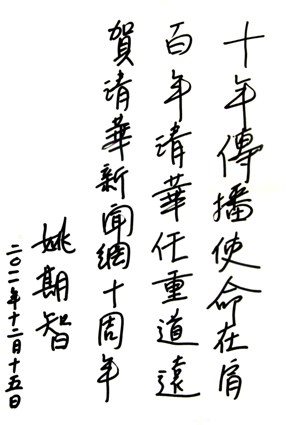 十年傳播使命在肩
百年清華任重道遠
賀清華新聞網十周年
姚期智
二〇一一年十二月十五日